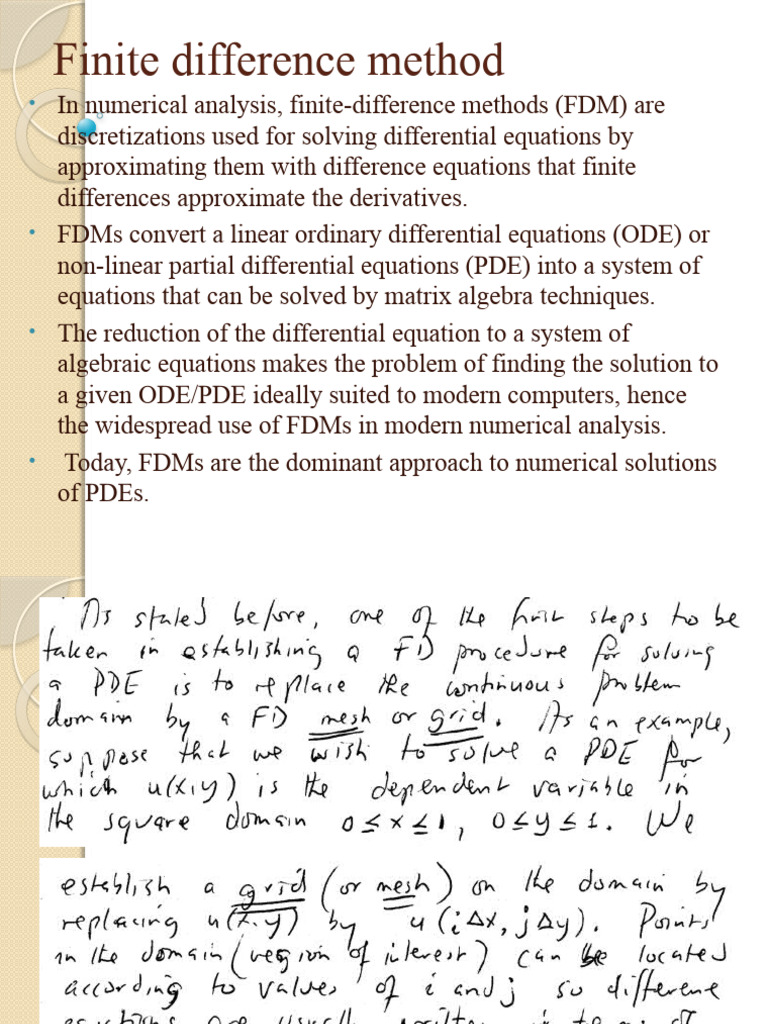 Finite difference method
• In numerical analysis, finite-difference methods (FDM) are
discretizations used for solving differential equations by
approximating them with difference equations that finite
differences approximate the derivatives.
• FDMs convert a linear ordinary differential equations (ODE) or
non-linear partial differential equations (PDE) into a system of
equations that can be solved by matrix algebra techniques.
• The reduction of the differential equation to a system of
algebraic equations makes the problem of finding the solution to
a given ODE/PDE ideally suited to modern computers, hence
the widespread use of FDMs in modern numerical analysis.
• Today, FDMs are the dominant approach to numerical solutions
of PDEs.
As stated before, one of the first steps to be
taken in establishing a FD procedure for solving
a PDE is to replace the continuous problem
domain by a FD mesh or grid. As an example,
suppose that we wish to solve a PDE for
which u(x,y) is the dependent variable in
the square domain 0≤x≤1, 0≤y≤1. We
establish a grid (or mesh) on the domain by
replacing u(x,y) by u(iΔx, jΔy). Points
in the domain (region of interest) can be located
according to values of i and j so difference
equations are usually written in